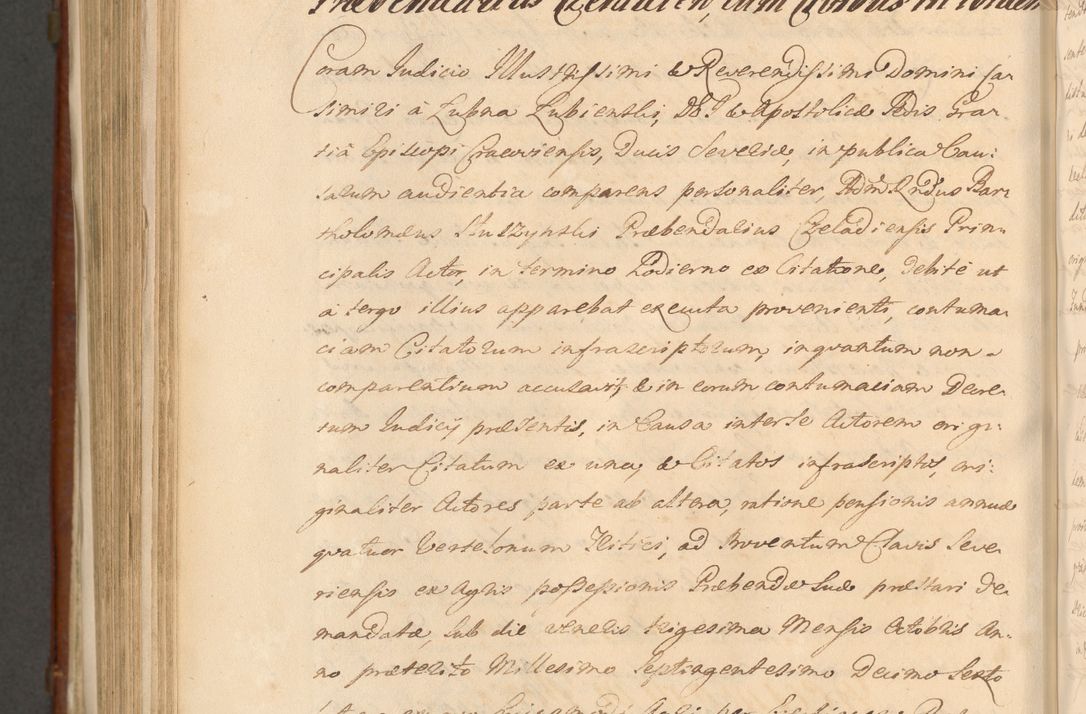 Præbendarius Czeladien, cum Civibus in
Coram Judicio Illustrissimi & Reverendissimi Domini Ca-
simiri à Lubna Lubienski, DEI & Apostolicæ Sedis Gra-
tiâ Episcopi Cracoviensis, Ducis Severiæ, in publica Cau-
sarum audientia comparens personaliter, Adm Rndus Bar-
tholomæus Præbendarius Czeladiensis Prin-
cipalis Actor, in termino hodierno ex Citatione, debitè ut
à tergo illius apparebat executa provenienti, contuma-
ciam Citatorum infrascriptorum, inquantum non -
comparentium accusavit, & in eorum contumaciam Decre-
tum Judicij præsentis, in Causa inter se Actorem origi-
naliter Citatum ex una, & Citatos infrascriptos, ori-
ginaliter Actores parte ab altera, ratione pensionis annuæ
quatuor Tritici, ad Proventum Clavis Seve-
riensis ex Agris possessionis Præbendæ suæ præstari de-
mandatæ, sub die Veneris trigesima Mensis Octobris An-
no præterito Millesimo Septingentesimo Decimo Sexto